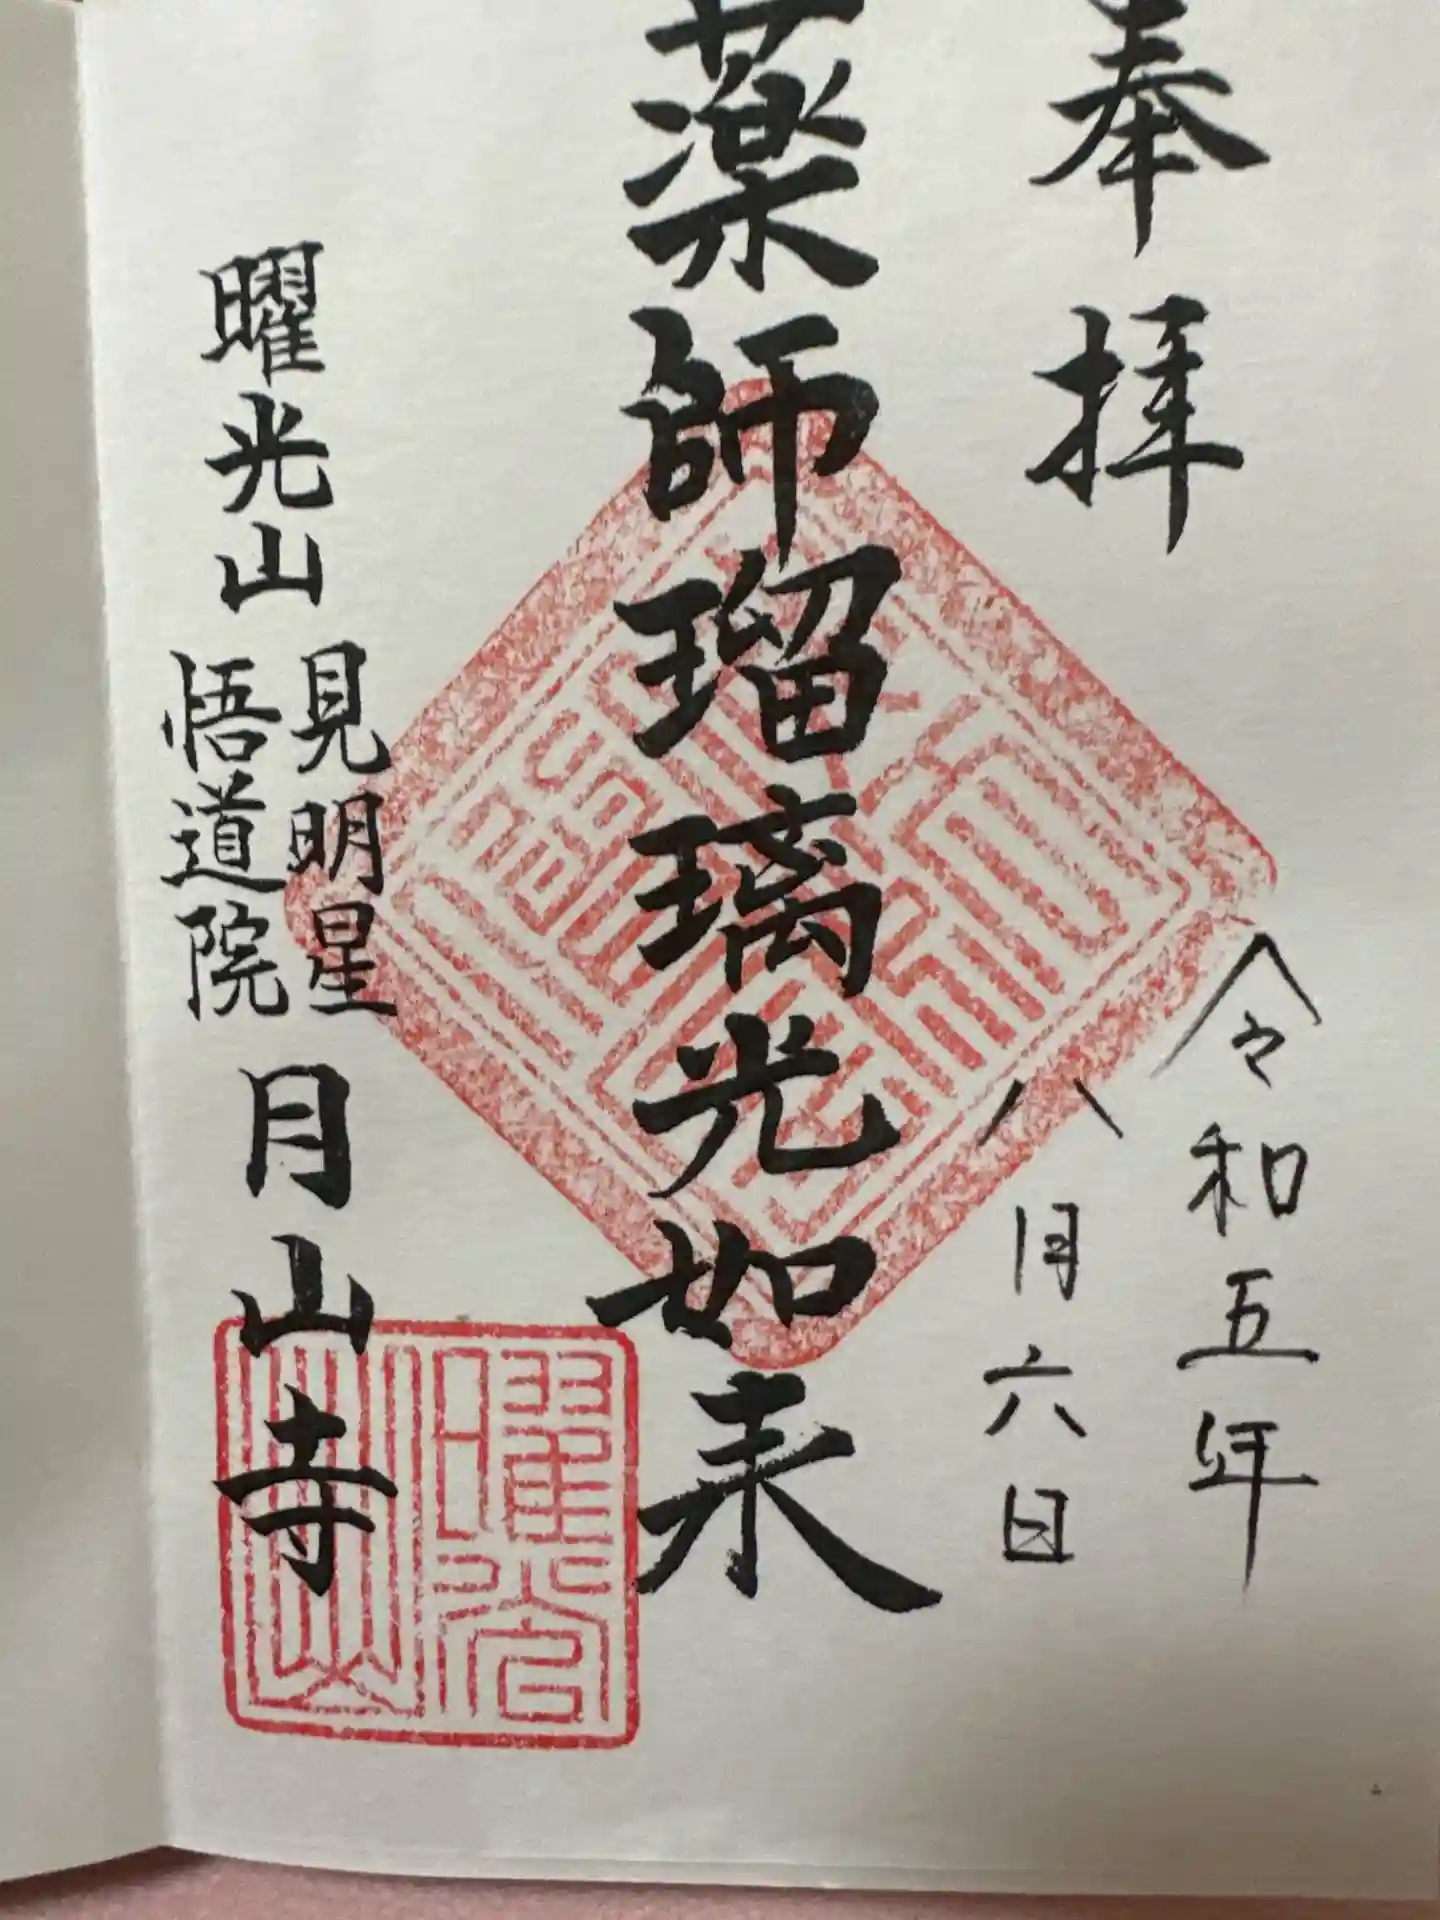 奉拝
令和五年
八月六日
薬師瑠璃光如来
曜光山
見明星
悟道院
月山寺
曜光
山